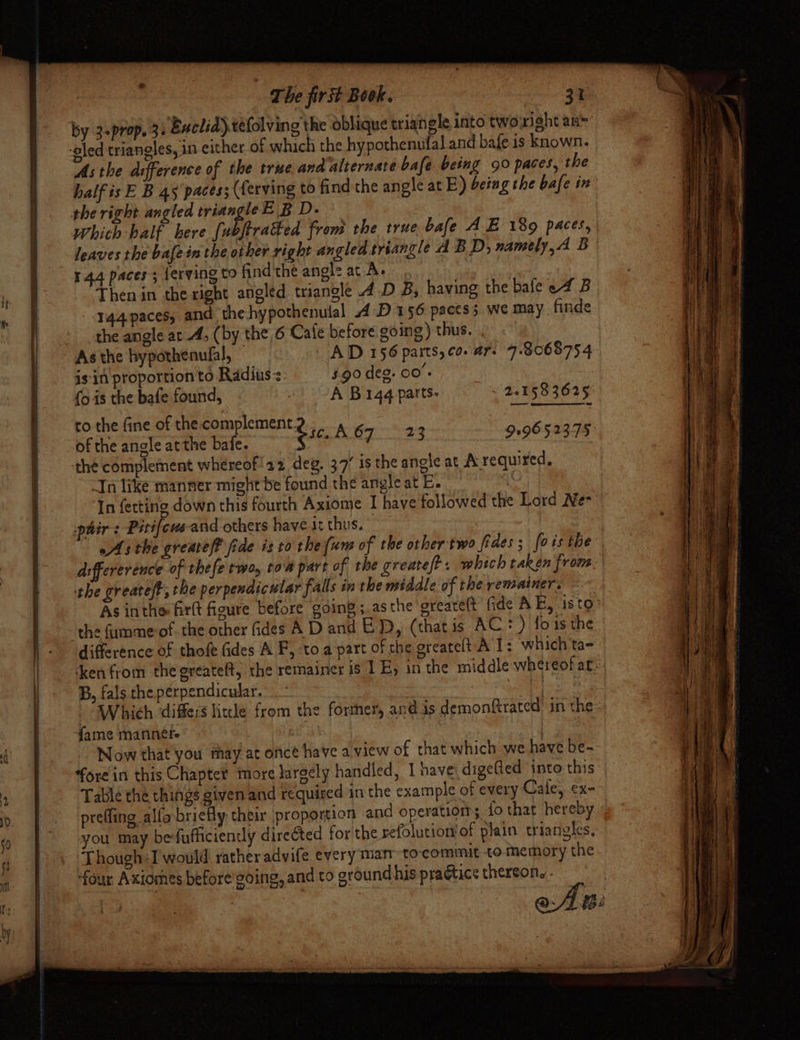 The first Book. 31
by 3. prop. 3. Euclid) resolving the oblique triangle into two right an-
gled triangles, in either of which the hypothenusal and base is known.
As the difference of the true and alternate base being 90 paces, the
half is E B 45 paces; (serving to find the angle at E) being the base in
the right angled triangle E B D.
Which half here substracted from the true base A E 189 paces,
leaves the base in the other right angled triangle A B D, namely, A B
144 paces; serving to find the angle at A.
Then in the right angled triangle A D B, having the base A B
144 paces, and the hypothenusal A D 156 paces; we may finde
the angle at A, (by the 6 Case before going) thus.
As the hypothenusal, A D 156 parts, co. ar. 7.8068754
is in proportion to Radius: s.90 deg. 00'.
so is the base found, A B 144 parts. 2.1583625
to the sine of the complement
of the angle at the base. } sc. A 67 23 9.9652375
the complement whereof 22 deg. 37' is the angle at A required.
In like manner might be found the angle at E.
In setting down this fourth Axiome I have followed the Lord Ne-
pair: Pitiscus and others have it thus.
As the greatest side is to the sum of the other two sides; so is the
differerence of these two, to a part of the greatest: which taken from
the greatest, the perpendicular falls in the middle of the remainer.
As in the first figure before going; as the greatest side A E, is to
the summe of the other sides A D and E D, (that is AC:) so is the
difference of those sides A F, to a part of the greatest A I: which ta-
ken from the greatest, the remainer is I E, in the middle whereof at
B, fals the perpendicular.
Which differs little from the former, and is demonstrated in the
same manner.
Now that you may at once have a view of that which we have be-
fore in this Chapter more largely handled, I have digested into this
Table the things given and required in the example of every Case, ex-
pressing also briefly their proportion and operation; so that hereby
you may be sufficiently directed for the resolution of plain triangles.
Though I would rather advise every man to commit to memory the
four Axiomes before going, and to ground his practice thereon.
An